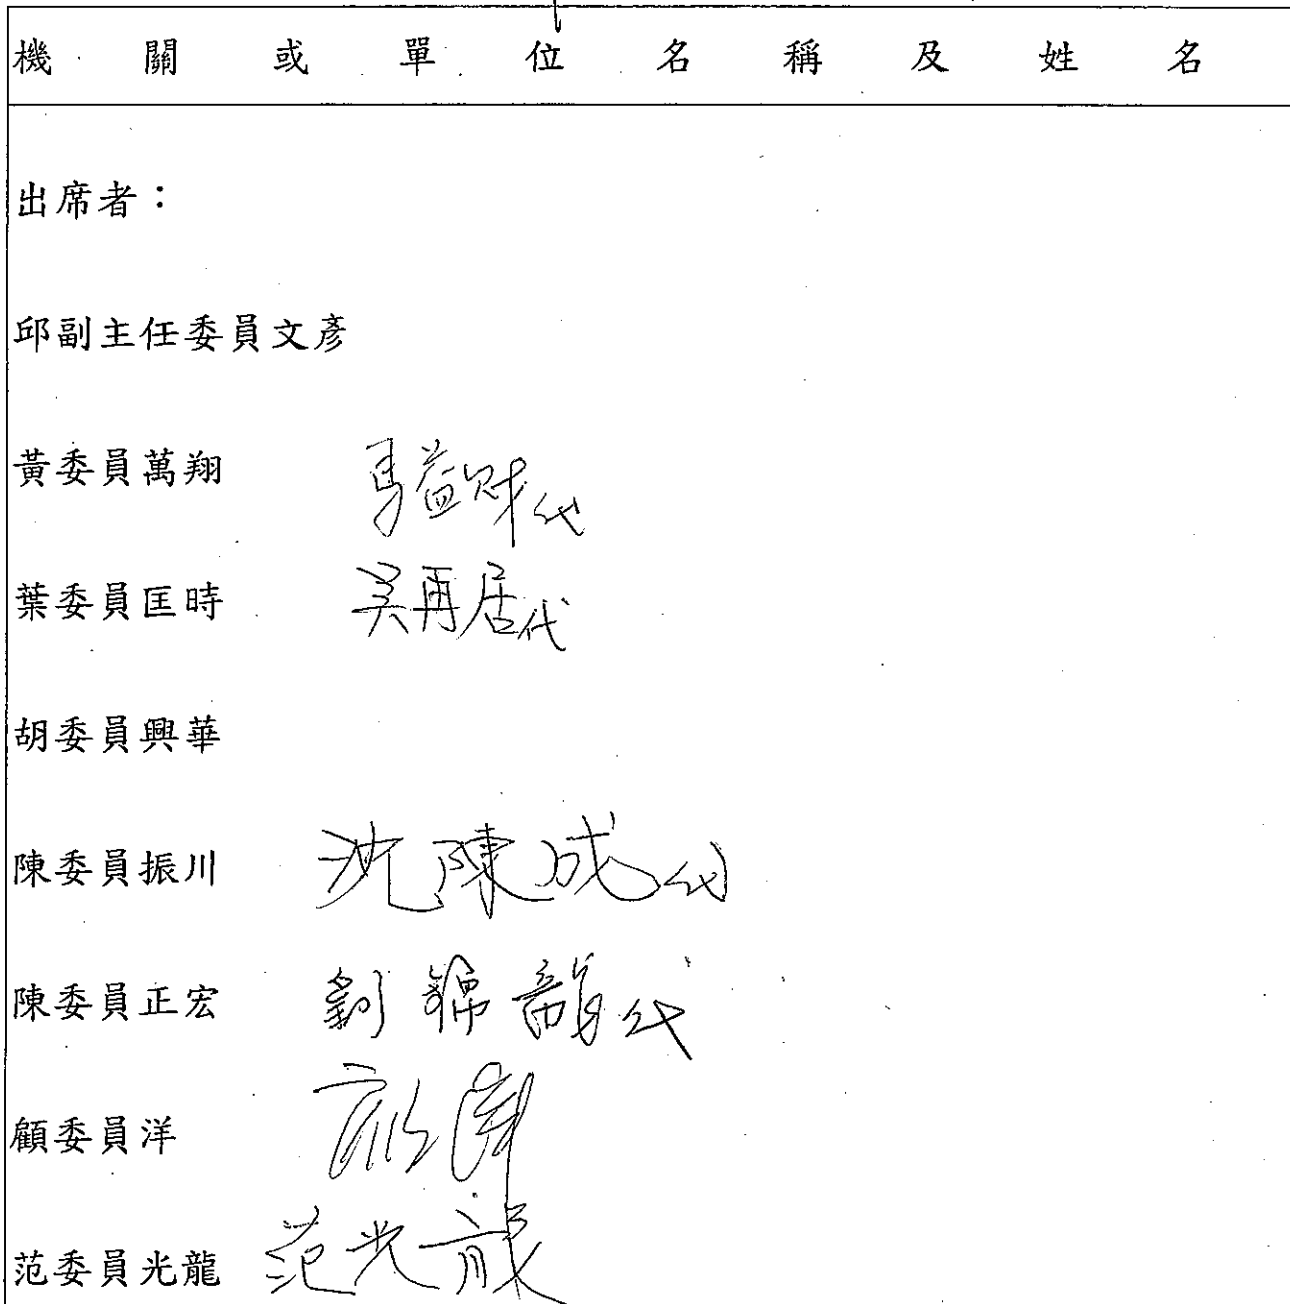 機關或單位名稱及姓名
出席者：
邱副主任委員文彥
黃委員萬翔 馬益財代
葉委員匡時 吳再居代
胡委員興華
陳委員振川 沈陳成代
陳委員正宏 劉錦龍代
顧委員洋 顧洋
范委員光龍 范光龍